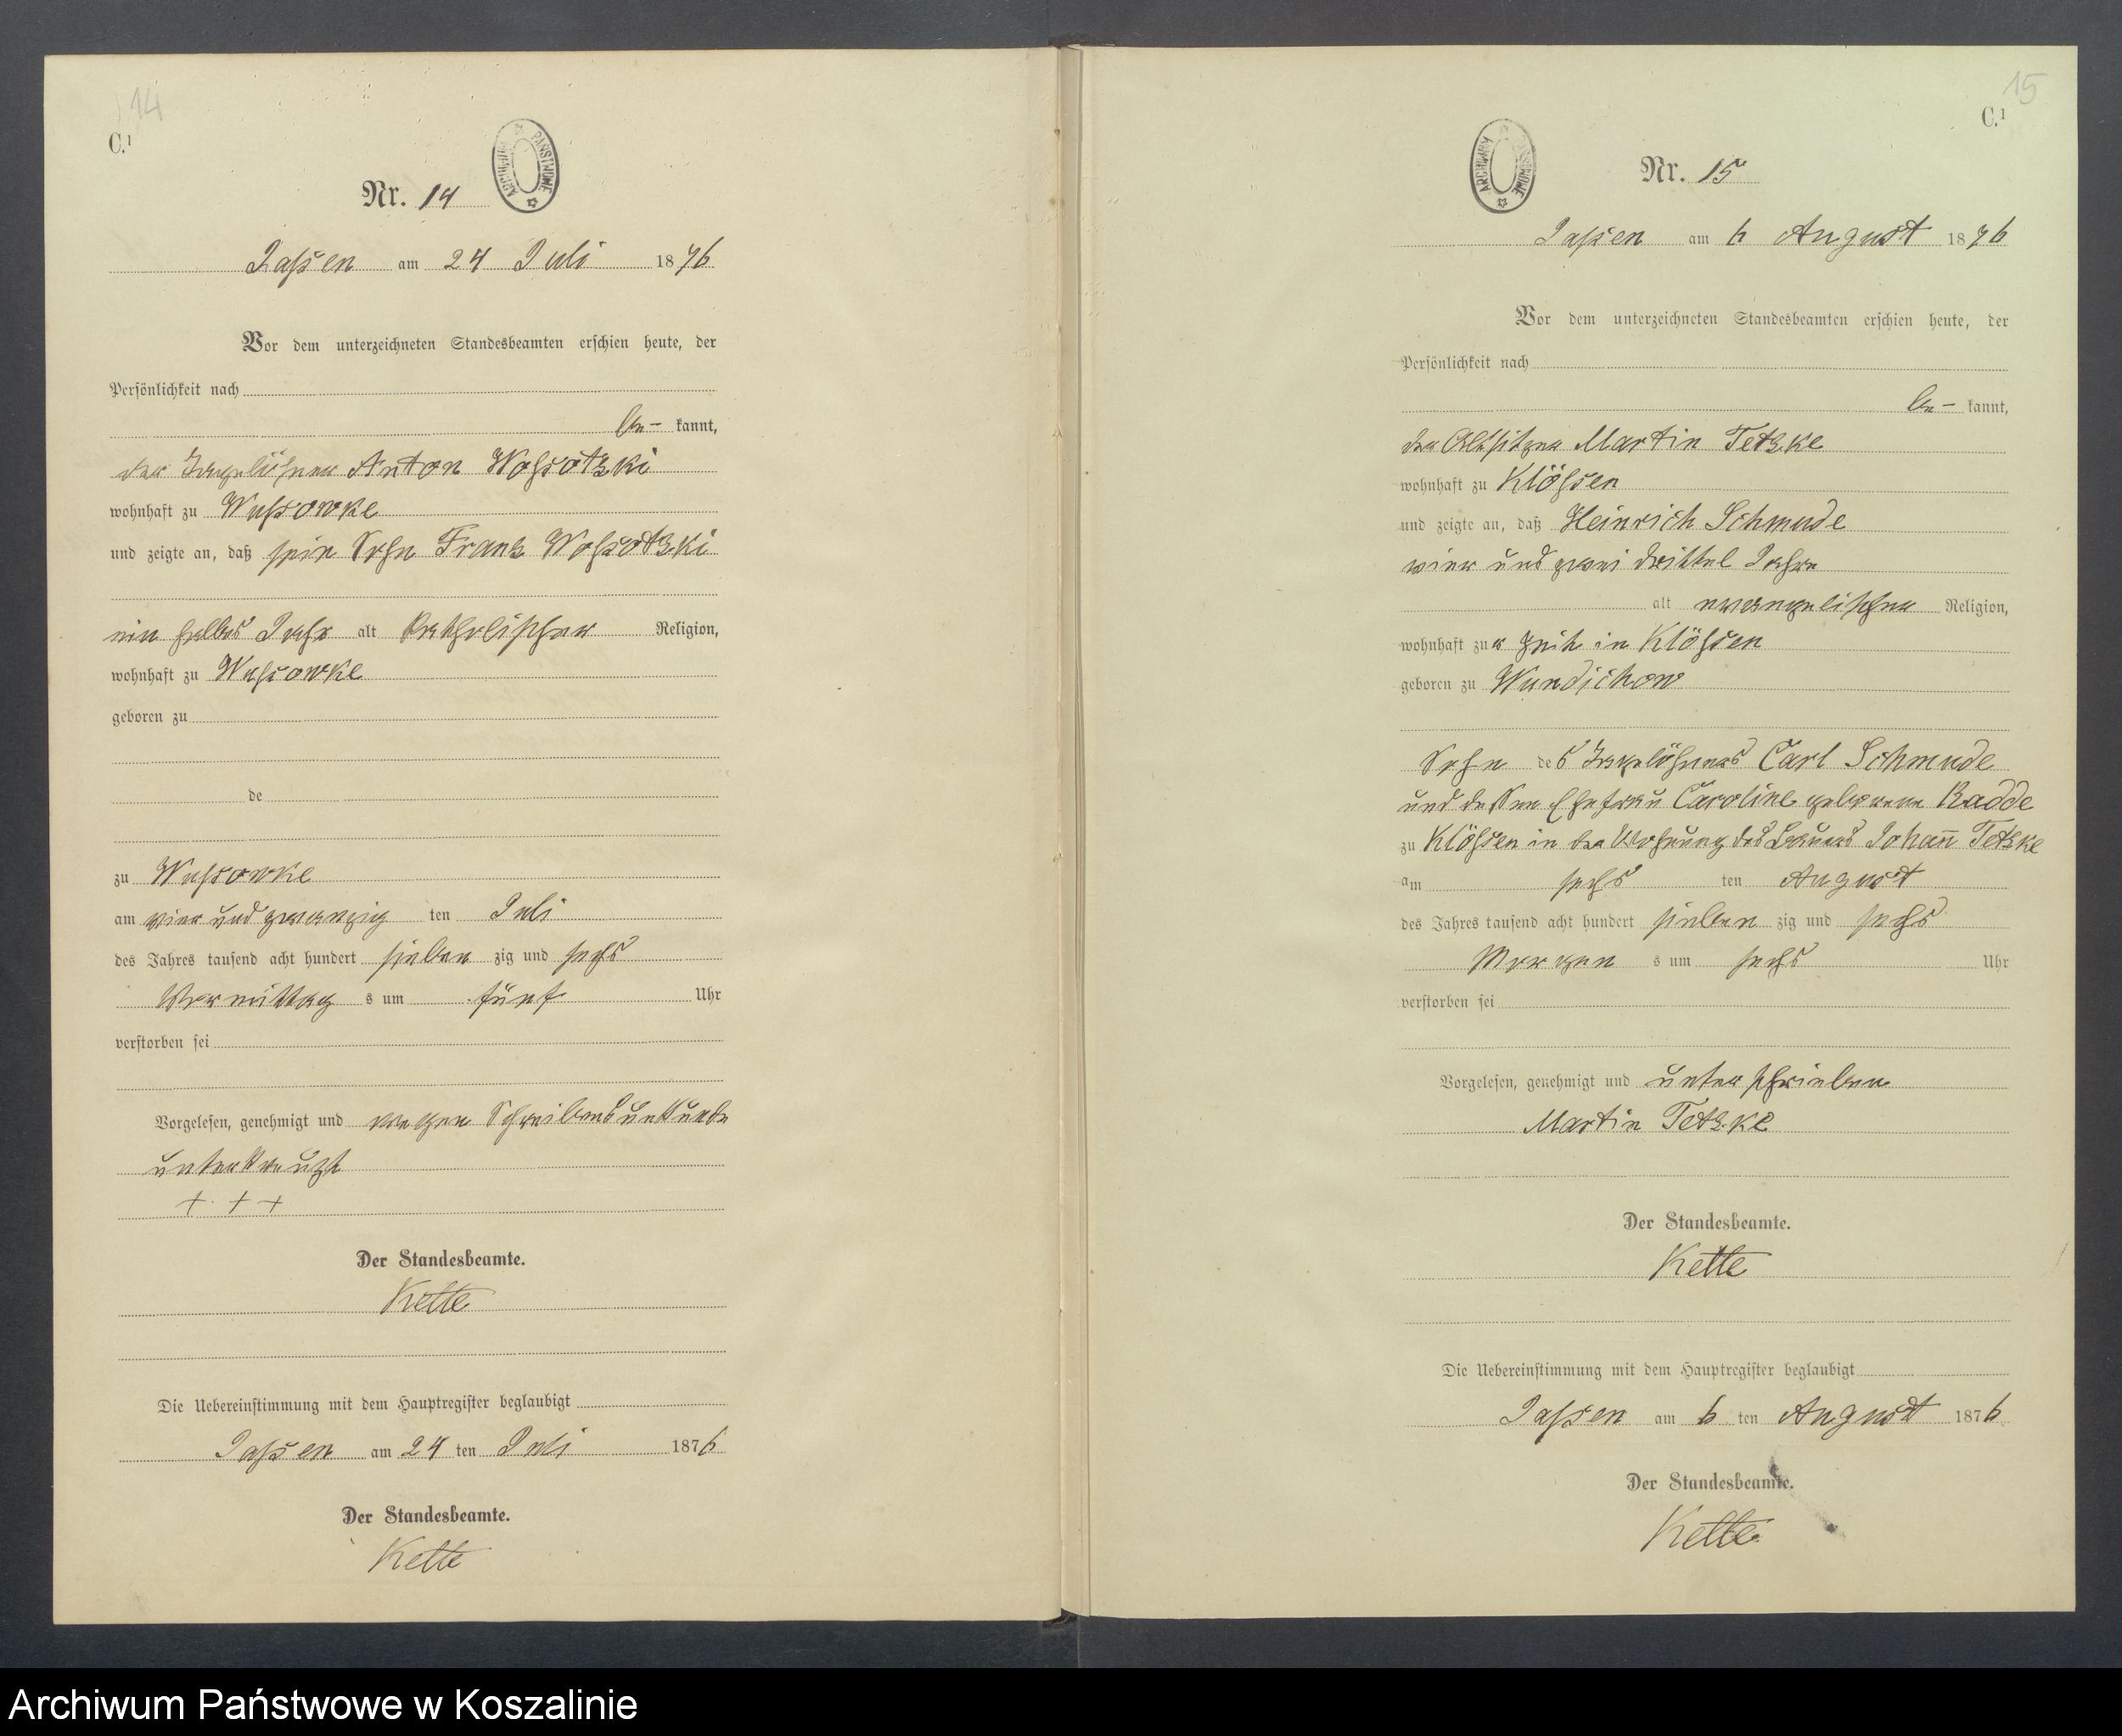 14
C.¹
ARCHIWUM PAŃSTWOWE
Nr. 14
Jaßen am 24 Juli 1876
Vor dem unterzeichneten Standesbeamten erschien heute, der
Persönlichkeit nach
be- kannt,
der Tagelöhner Anton Woßotzki
wohnhaft zu Wußowke
und zeigte an, daß sein Sohn Franz Woßotzki
ein halbes Jahr alt katholischer Religion,
wohnhaft zu Wußowke
geboren zu
de
zu Wußowke
am vier und zwanzig ten Juli
des Jahres tausend acht hundert sieben zig und sechs
Vormittag s um fünf Uhr
verstorben sei
Vorgelesen, genehmigt und wegen Schreibensunkunde
unterkreuzt
+ + +
Der Standesbeamte.
Kette
Die Uebereinstimmung mit dem Hauptregister beglaubigt
Jaßen am 24 ten Juli 1876
Der Standesbeamte.
Kette
15
C.¹
ARCHIWUM PAŃSTWOWE
Nr. 15
Jaßen am 6 August 1876
Vor dem unterzeichneten Standesbeamten erschien heute, der
Persönlichkeit nach
be- kannt,
der Altsitzer Martin Tetzke
wohnhaft zu Klößen
und zeigte an, daß Heinrich Schmude
vier und zwei drittel Jahre
alt evangelischer Religion,
wohnhaft zur Zeit in Klößen
geboren zu Wundichow
Sohn des Tagelöhners Carl Schmude
und dessen Ehefrau Caroline geborene Radde
zu Klößen in der Wohnung des Bauers Johann̅ Tetzke
am sechs ten August
des Jahres tausend acht hundert sieben zig und sechs
Morgen s um sechs Uhr
verstorben sei
Vorgelesen, genehmigt und unterschrieben
Martin Tetzke
Der Standesbeamte.
Kette
Die Uebereinstimmung mit dem Hauptregister beglaubigt
Jaßen am 6 ten August 1876
Der Standesbeamte.
Kette
Archiwum Państwowe w Koszalinie